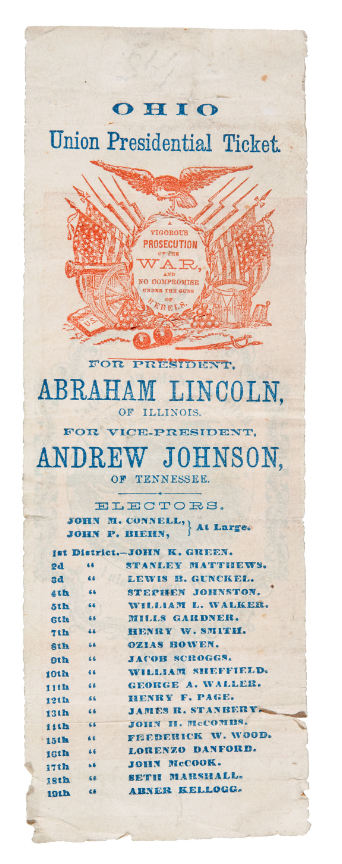 OHIO
Union Presidential Ticket.
A
VIGOROUS
PROSECUTION
OF THE
WAR,
AND
NO COMPROMISE
UNDER THE GUNS
OF
REBELS.
FOR PRESIDENT,
ABRAHAM LINCOLN,
OF ILLINOIS.
FOR VICE-PRESIDENT,
ANDREW JOHNSON,
OF TENNESSEE.
ELECTORS.
JOHN M. CONNELL, } At Large.
JOHN P. BIEHN,
1st District.—JOHN K. GREEN.
2d “ STANLEY MATTHEWS.
3d “ LEWIS B. GUNCKEL.
4th “ STEPHEN JOHNSTON.
5th “ WILLIAM L. WALKER.
6th “ MILLS GARDNER.
7th “ HENRY W. SMITH.
8th “ OZIAS BOWEN.
9th “ JACOB SCROGGS.
10th “ WILLIAM SHEFFIELD.
11th “ GEORGE A. WALLER.
12th “ HENRY F. PAGE.
13th “ JAMES R. STANBERY.
14th “ JOHN H. McCOMBS.
15th “ FREDERICK W. WOOD.
16th “ LORENZO DANFORD.
17th “ JOHN McCOOK.
18th “ SETH MARSHALL.
19th “ ABNER KELLOGG.